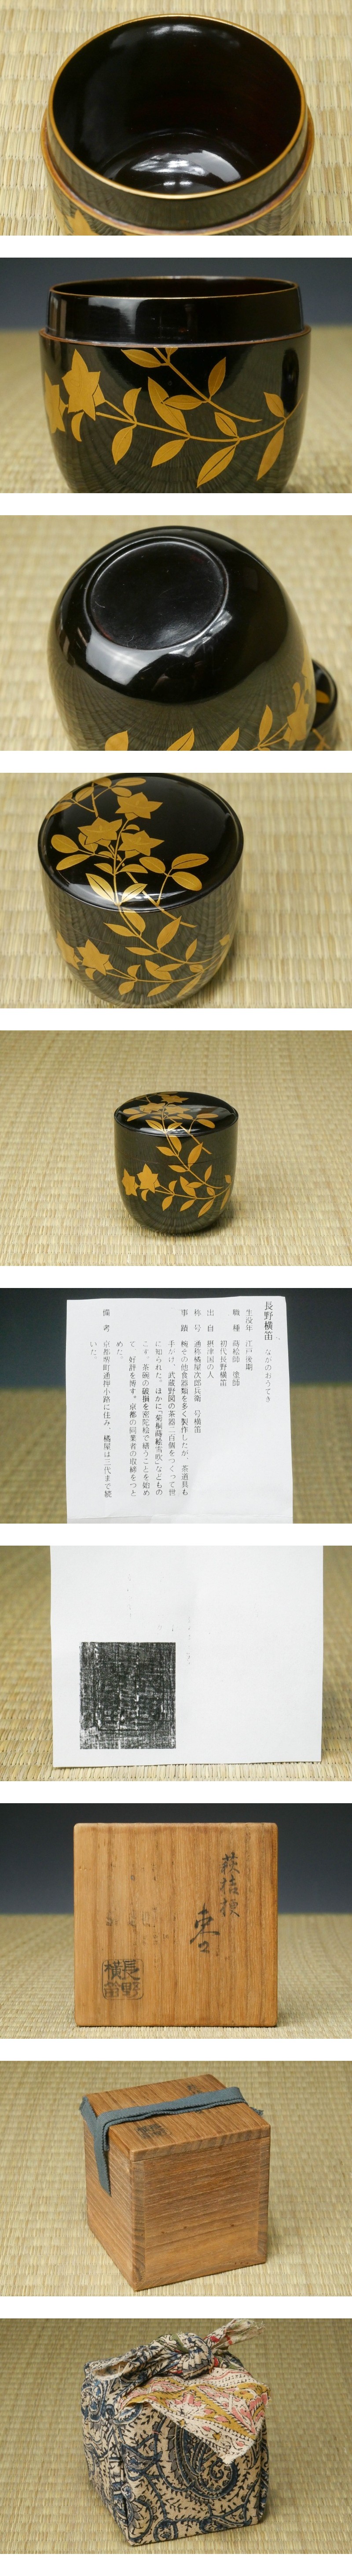 長野横笛 ながのおうてき
生没年 江戸後期
職種 蒔絵師 塗師
初代長野横笛
出自 摂津国の人
称号 通称橘屋次郎兵衛 号横笛
事蹟 椀その他食器類を多く製作したが、茶道具も
手がけ、武蔵野図の茶器二百個をつくって世
に知られた。ほかに「菊桐蒔絵雪吹」などもの
こす。茶碗の破損を密陀絵で繕うことを始め
て、好評を博す。京都の同業者の取締をつと
めた。
備考 京都堺町通押小路に住み、橘屋は三代まで続
いた。
萩桔梗
棗
長野
横笛